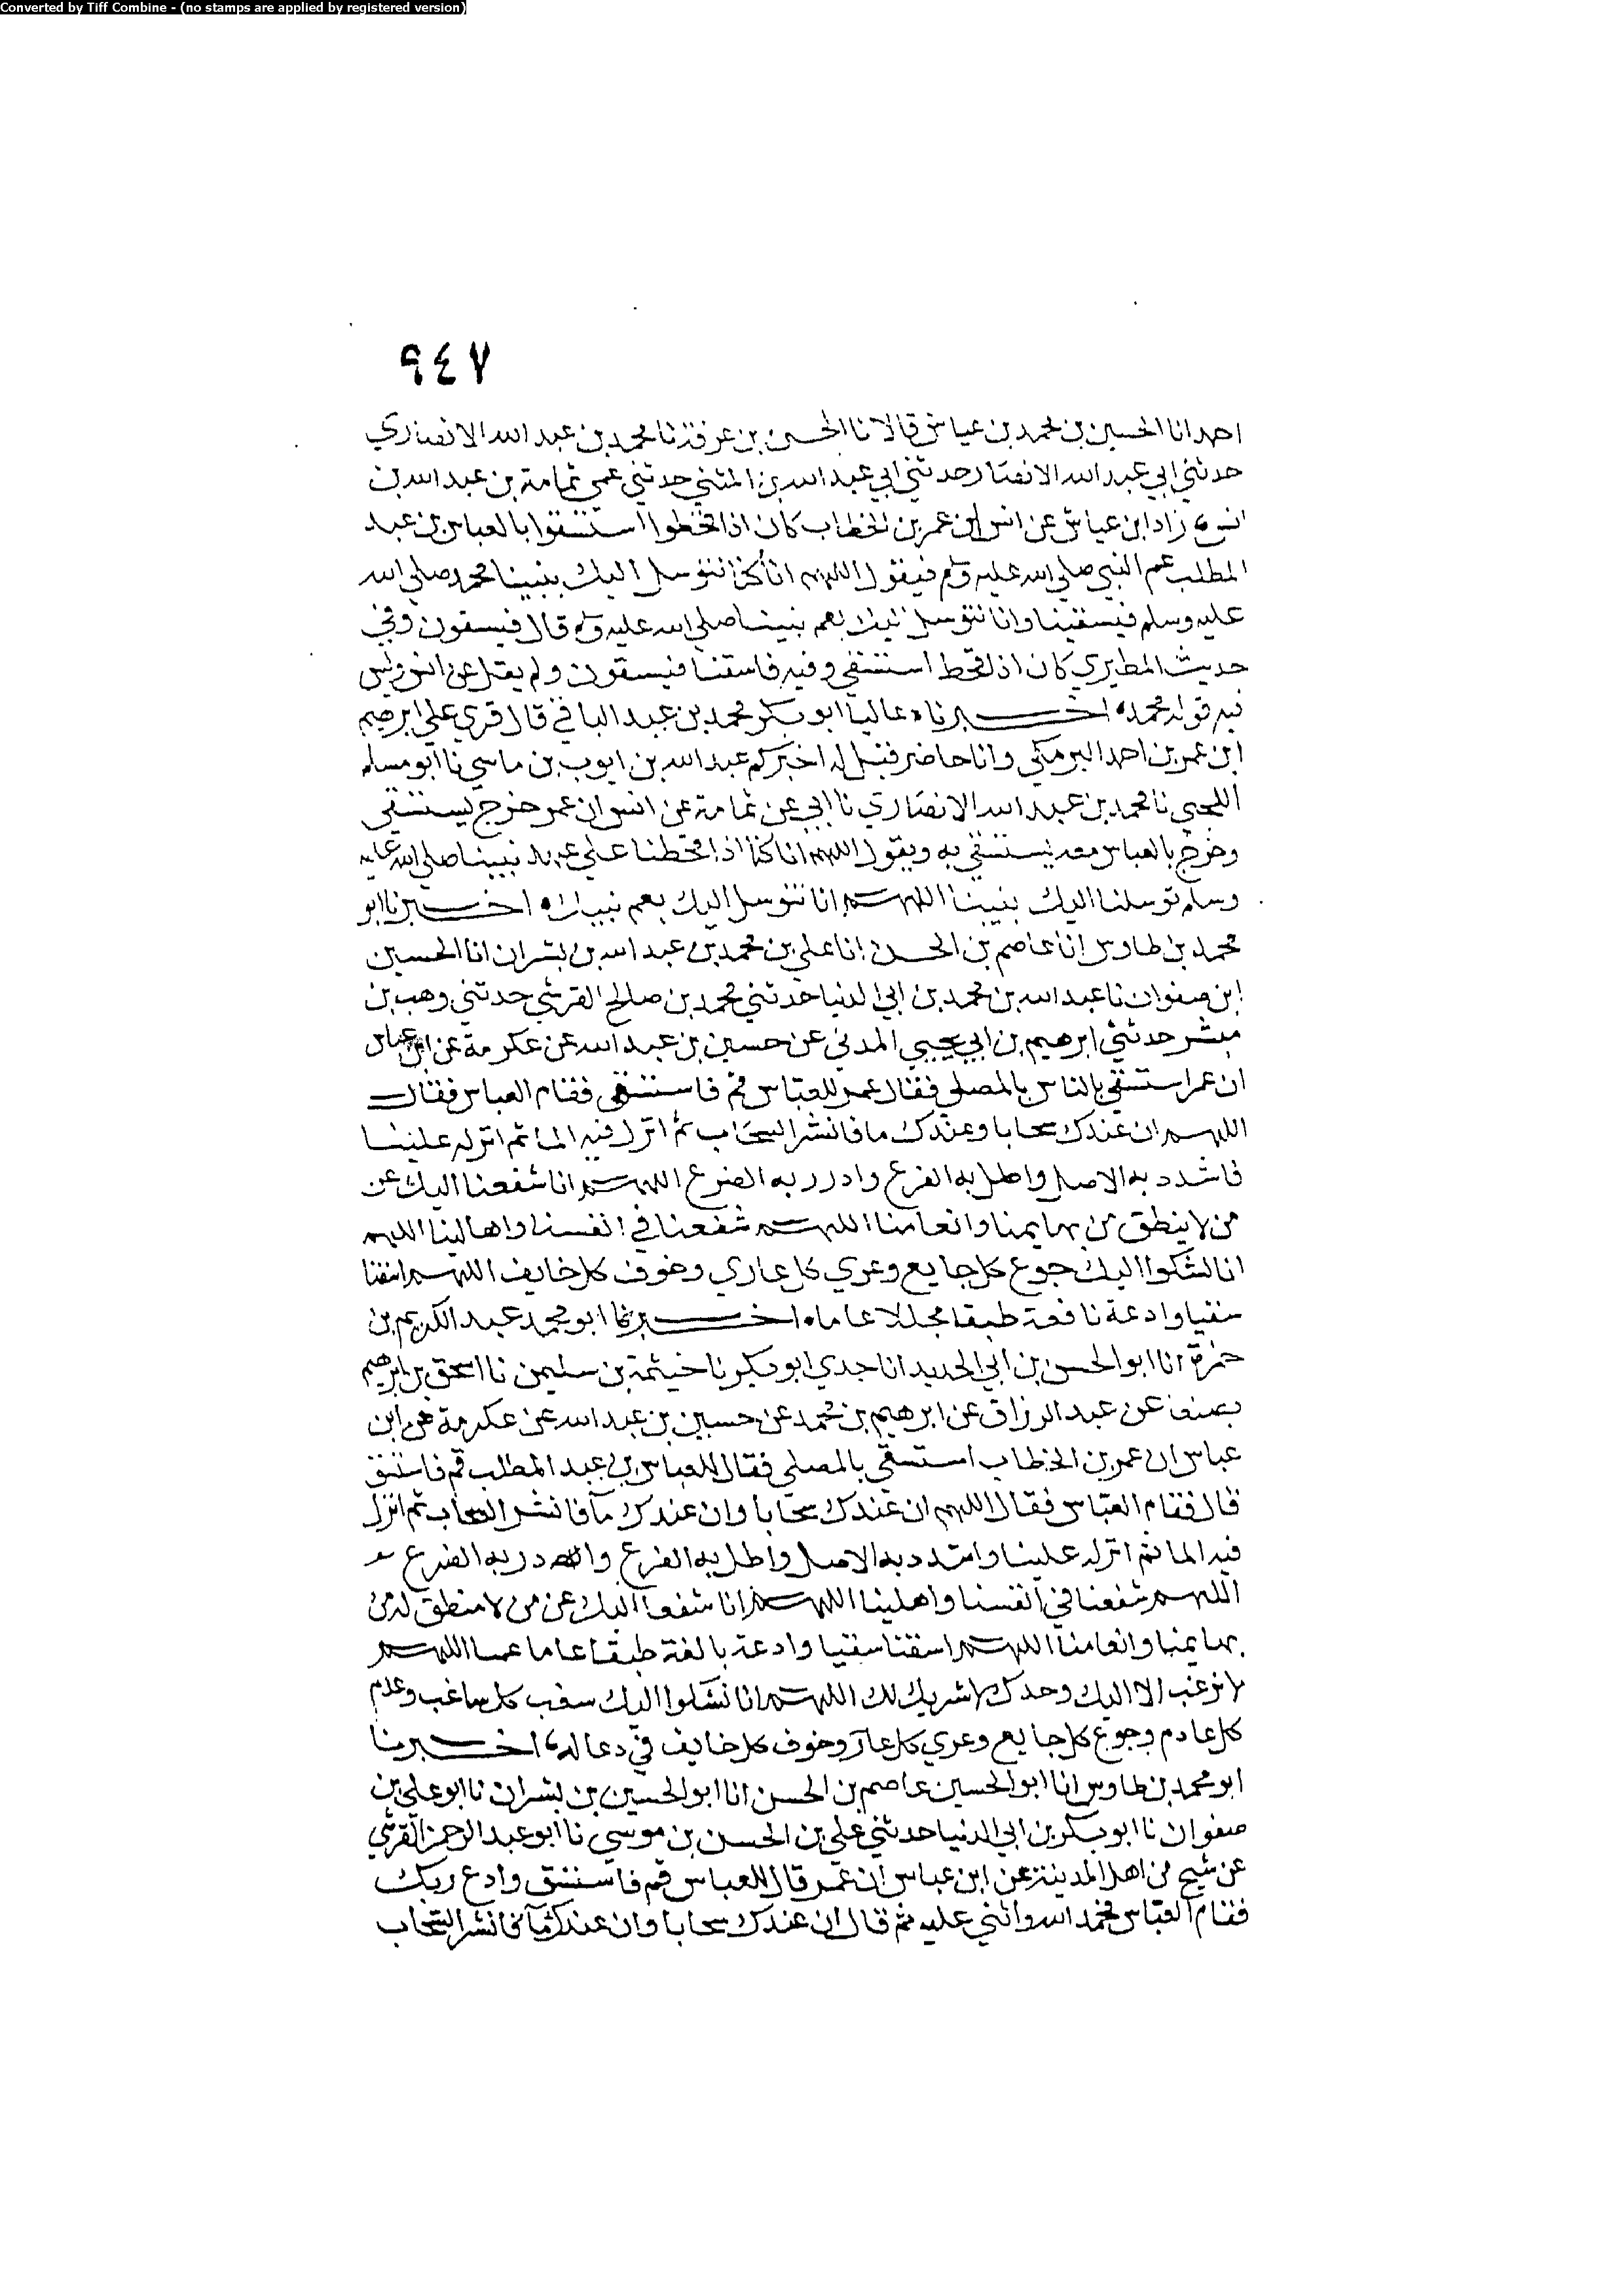 Converted by Tiff Combine - (no stamps are applied by registered version)
٩٤٧
احمد انا الحسين بن محمد بن عياش قالا نا الحسن بن عرفة نا محمد بن عبد الله الانصاري
حدثني ابي عبد الله الانصار حدثني ابي عبد الله بن المثني حدثني عمي ثمامة بن عبد الله بن
انس زاد ابن عياش عن انس ان عمر بن الخطاب كان اذا قحطوا استسقوا بالعباس بن عبد
المطلب عم النبي صلي الله عليه وسلم فيقول اللهم انا كنا نتوسل اليك بنبينا محمد صلي الله
عليه وسلم فيسقينا وانا نتوسل اليك بعم نبينا صلي الله عليه وسلم قال فيسقون وفي
حديث المطيري كان اذا قحط استسقي وفيه فاسقنا فيسقون ولم يقل عن انس وليس
فيه قوله محمد اخبرناه عاليا ابو بكر محمد بن عبد الباقي قال قري علي ابرهيم
ابن عمر بن احمد البرمكي وانا حاضر فقيل له اخبركم عبد الله بن ايوب بن ماسي نا ابو مسلم
اللجي نا محمد بن عبد الله الانصاري نا ابي عن ثمامة عن انس ان عمر خرج يستسقي
وخرج بالعباس معه يستسقي به ويقول اللهم انا كنا اذا قحطنا علي عهد نبينا صلي الله عليه
وسلم توسلنا اليك بنبينا اللهم انا نتوسل اليك بعم نبينا اخبرنا ابو
محمد بن طاوس انا عاصم بن الحسن انا علي بن محمد بن عبد الله بن بشران انا الحسين
ابن صفوان نا عبد الله بن محمد بن ابي الدنيا حدثني محمد بن صالح القرشي حدثني وهب بن
مبشر حدثني ابرهيم بن ابي يحيي المدني عن حسين بن عبد الله عن عكرمة عن ابن عباس
ان عمر استسقي بالناس بالمصلي فقال عمر للعباس قم فاستسقي فقام العباس فقال
اللهم ان عندك سحابا وعندك ما فانشر السحاب ثم انزل فيه الما ثم انزله علينا
فاشدد به الاصل واطل به الفرع وادرر به الضرع اللهم انا شفعنا اليك عن
من لا ينطق من بهايمنا وانعامنا اللهم شفعنا في انفسنا واهالينا اللهم
انا لنشكوا اليك جوع كل جايع وعري كل عاري وخوف كل خايف اللهم اسقنا
سقيا وادعة نافعة طبقا مجللا عاما اخبرنا ابو محمد عبد الكريم بن
حمزة انا ابو الحسن بن ابي الحديد انا جدي ابو بكر نا خيثمة بن سليمن نا اسحق بن ابرهيم
بصنعا عن عبد الرزاق عن ابرهيم بن محمد عن حسين بن عبد الله عن عكرمة عن ابن
عباس ان عمر بن الخطاب استسقي بالمصلي فقال للعباس بن عبد المطلب قم فاستسق
قال فقام العباس فقال اللهم ان عندك سحابا وان عندك مآ فانشر السحاب ثم انزل
فيه الما ثم انزله علينا واشدد به الاصل واطل به الفرع وادرر به الضرع
اللهم شفعنا في انفسنا واهلينا اللهم انا شفعنا اليك عن من لا منطق له من
بهايمنا وانعامنا اللهم اسقنا سقيا وادعة بالغة طبقا عاما اللهم
لا نرغب الا اليك وحدك لا شريك لك اللهم انا نشكوا اليك سغب كل ساغب وعدم
كل عادم وجوع كل جايع وعري كل عار وخوف كل خايف في دعا له اخبرنا
ابو محمد بن طاوس انا ابو الحسين عاصم بن الحسن انا ابو الحسين بن بشران نا ابو علي بن
صفوان نا ابو بكر بن ابي الدنيا حدثني علي بن الحسن بن موسي نا ابو عبد الرحمن القرشي
عن شيخ من اهل المدينة عن ابن عباس ان عمر قال للعباس قم فاستسق وادع ربك
فقام العباس فحمد الله واثني عليه ثم قال ان عندك سحابا وان عندك مآ فانشر السحاب